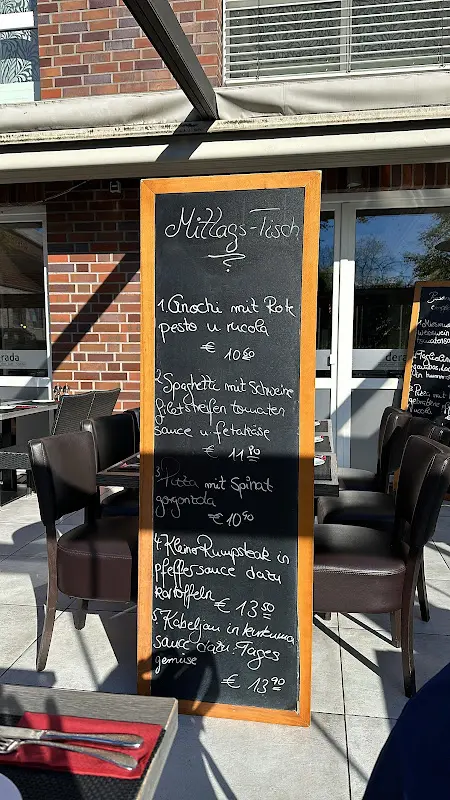 Mittags-Tisch
1. Gnochi mit Rote
pesto u rucola
€ 10⁶⁰
2. Spaghetti mit Schweine
filetstreifen tomaten
sauce u. fetakäse
€ 11⁹⁰
3. Pizza mit Spinat
gorgonzola
€ 10⁹⁰
4. Kleiner Rumpsteak in
pfeffersauce dazu
kartoffeln € 13⁵⁰
5. Kabeljau in kurkuma
sauce dazu Tages
gemüse
€ 13⁹⁰
rada
dera